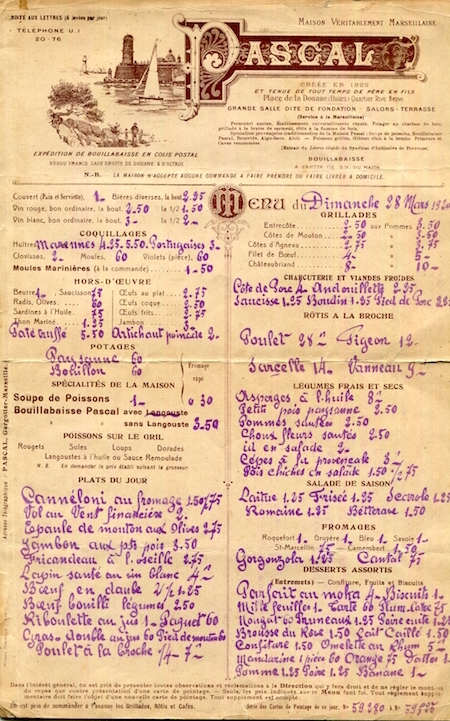 BOITE AUX LETTRES (6 levées par jour)
TÉLÉPHONE U.1
20-76
MAISON VÉRITABLEMENT MARSEILLAISE
PASCAL
CRÉÉE EN 1829
ET TENUE DE TOUT TEMPS DE PÈRE EN FILS
Place de la Douane (Thiars) Quartier Rive Neuve
GRANDE SALLE DITE DE FONDATION - SALONS - TERRASSE
(Service à la Marseillaise)
EXPÉDITION DE BOUILLABAISSE EN COLIS POSTAL
RENDU FRANCO LADITE DROITS DE DOUANE & D'OCTROI
BOUILLABAISSE
N.-B. LA MAISON N'ACCEPTE AUCUNE COMMANDE A FAIRE PRENDRE OU FAIRE LIVRER A DOMICILE.
Couvert (Pain et Serviette). 1 - Bières diverses, la bout 2.95
Vin rouge, bon ordinaire, la bout. 2.50 la 1/2 1.50
Vin blanc, bon ordinaire, la bout. 3 - la 1/2 2 -
COQUILLAGES
Huîtres Marennes 4.25. 5.50 Portugaises 3 -
Clovisses. 2 - Moules. 60 Violets (pièce). 60
Moules Marinières (à la commande) 1-50
HORS-D'ŒUVRE
Beurre 1 - Saucisson 75 Œufs au plat 2.75
Radis, Olives. 60 Œufs coque 2.50
Sardines à l'Huile. 75 Œufs frits 2.75
Thon Mariné 1.25 Jambon 3 -
Paté truffé 5.50 Artichaut poivrade 2.
POTAGES
Paysanne 60
Bouillon 60
Fromage
râpé
0 30
SPÉCIALITÉS DE LA MAISON
Soupe de Poissons 1 -
Bouillabaisse Pascal avec Langouste
sans Langouste 3.50
POISSONS SUR LE GRIL
Rougets Soles Loups Dorades
Langoustes à l'huile ou Sauce Remoulade
N. B. En demander le prix établi suivant la grosseur
PLATS DU JOUR
Canneloni au fromage 1.50/.75
Vol au Vent financière 2
Epaule de mouton aux Olives 2.75
Jambon aux pts pois 3.50
Fricandeau à l'oseille 2.75
Lapin sauté au vin blanc 4 -
Bœuf en daube 2/1.25
Bœuf bouilli légumes 2.50
Riboulette au jus 1 - Paquet 60
Gras-double au jus 60 Pied de mouton 60
Poulet à la broche 14 - 7 -
Menu du Dimanche 28 Mars 1920
GRILLADES
Entrecôte 2.50 aux Pommes 3.50
Côtes de Mouton 2.50 3.50
Côtes d'Agneau 2.75 3.75
Filet de Bœuf 4 - 5 -
Châteaubriand 8 - 10 -
CHARCUTERIE ET VIANDES FROIDES
Côte de Porc 4 Andouillette 2.25
Saucisse 1.25 Boudin 1.25 Pied de Porc 2.25
RÔTIS A LA BROCHE
Poulet 28 Pigeon 12 -
Sarcelle 14 - Vanneau 9 -
LÉGUMES FRAIS ET SECS
Asperges à l'huile 8 -
Petits pois paysanne 2.50
Pommes sautées 2.50
Choux fleurs sautés 2.50
id en salade 2 -
Cèpes à la provençale 8 -
Pois chiches en salade 1.50/.75
SALADE DE SAISON
Laitue 1.25 Frisée 1.25 Scarole 1.25
Romaine 1.25 Betterave 1.50
FROMAGES
Roquefort 1. Gruyère 1. Bleu 1. Savoie 1 -
St-Marcellin 75 - Camembert 1.50
Gorgonzola 1.25 Cantal 75
DESSERTS ASSORTIS
(Entremets) - Confiture, Fruits et Biscuits
Parfait au moka 4 - Biscuits 1 -
Mille feuilles 1. Tarte 60 Plum-Cake 75
Nougat 60 Pruneaux 1.25 Poire cuite 1.25
Brousse du Rove 1.50 Lait Caillé 1.50
Confiture 1.50 Omelette au Rhum 5 -
Mandarine 1 pièce 60 Orange 75 Dattes 1 -
Pomme 1.25 Poire 1.25 Banane 1 -
Adresse Télégraphique : PASCAL, Gargotier-Marseille.
Dans l'intérêt général, on est prié de présenter toutes observations et réclamations à la Direction qui y fera droit et de ne régler le montant
du repas que contre présentation d'une carte de pointage. - Seuls, les prix indiqués sur le Menu font foi. Tout règlement supplé-
mentaire doit faire l'objet d'une nouvelle carte de pointage.
On est prié de commander à l'avance les Grillades, Rôtis et Cafés.
Série des Cartes de Pointage de ce jour, du No 59280 à